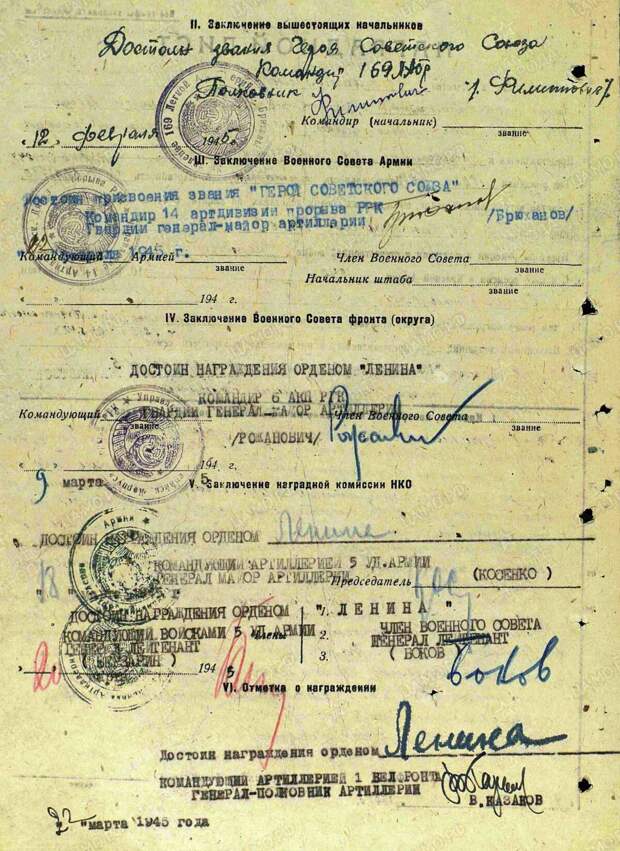 II. Заключение вышестоящих начальников
Достоин звания Героя Советского Союза
Командир 169 ЛАбр
Полковник /Филиппович/
Командир (начальник)
звание
„12" февраля 1945 г.
III. Заключение Военного Совета Армии
Достоин присвоения звания "ГЕРОЙ СОВЕТСКОГО СОЮЗА"
Командир 14 артдивизии прорыва РГК
Гвардии генерал-майор артиллерии /Брюханов/
1945 г.
Командующий Армией Член Военного Совета
звание звание
Начальник штаба
звание
" " 194 г.
IV. Заключение Военного Совета фронта (округа)
ДОСТОИН НАГРАЖДЕНИЯ ОРДЕНОМ "ЛЕНИНА"
КОМАНДИР 6 АКП РГК
Командующий ГВАРДИИ ГЕНЕРАЛ-МАЙОР АРТИЛЛЕРИИ Член Военного Совета
звание звание
/РОЖАНОВИЧ/
9 марта 1945 г.
V. Заключение наградной комиссии НКО
ДОСТОИН НАГРАЖДЕНИЯ ОРДЕНОМ Ленина
КОМАНДУЮЩИЙ АРТИЛЛЕРИЕЙ 5 УД.АРМИИ
ГЕНЕРАЛ МАЙОР АРТИЛЛЕРИИ Председатель (КОСЕНКО)
18
ДОСТОИН НАГРАЖДЕНИЯ ОРДЕНОМ "ЛЕНИНА"
КОМАНДУЮЩИЙ ВОЙСКАМИ 5 УД.АРМИИ Члены 1. 2. 3. ЧЛЕН ВОЕННОГО СОВЕТА
ГЕНЕРАЛ ЛЕЙТЕНАНТ ГЕНЕРАЛ ЛЕЙТЕНАНТ
(БЕРЗАРИН) (БОКОВ)
20 1945 Боков
VI. Отметка о награждении
Достоин награждения орденом Ленина
КОМАНДУЮЩИЙ АРТИЛЛЕРИЕЙ 1 БЕЛ.ФРОНТА
ГЕНЕРАЛ-ПОЛКОВНИК АРТИЛЛЕРИИ В.КАЗАКОВ
"22" марта 1945 года